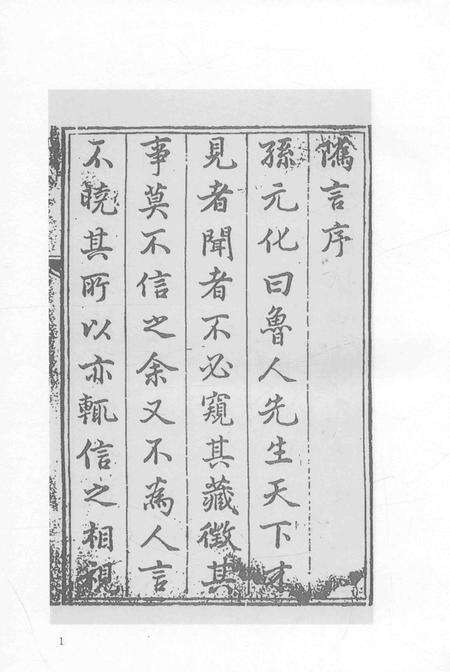 隲言序
孫元化曰魯人先生天下才
見者聞者不必窺其藏徵其
事莫不信之余又不為人言
不曉其所以亦輒信之相視
1